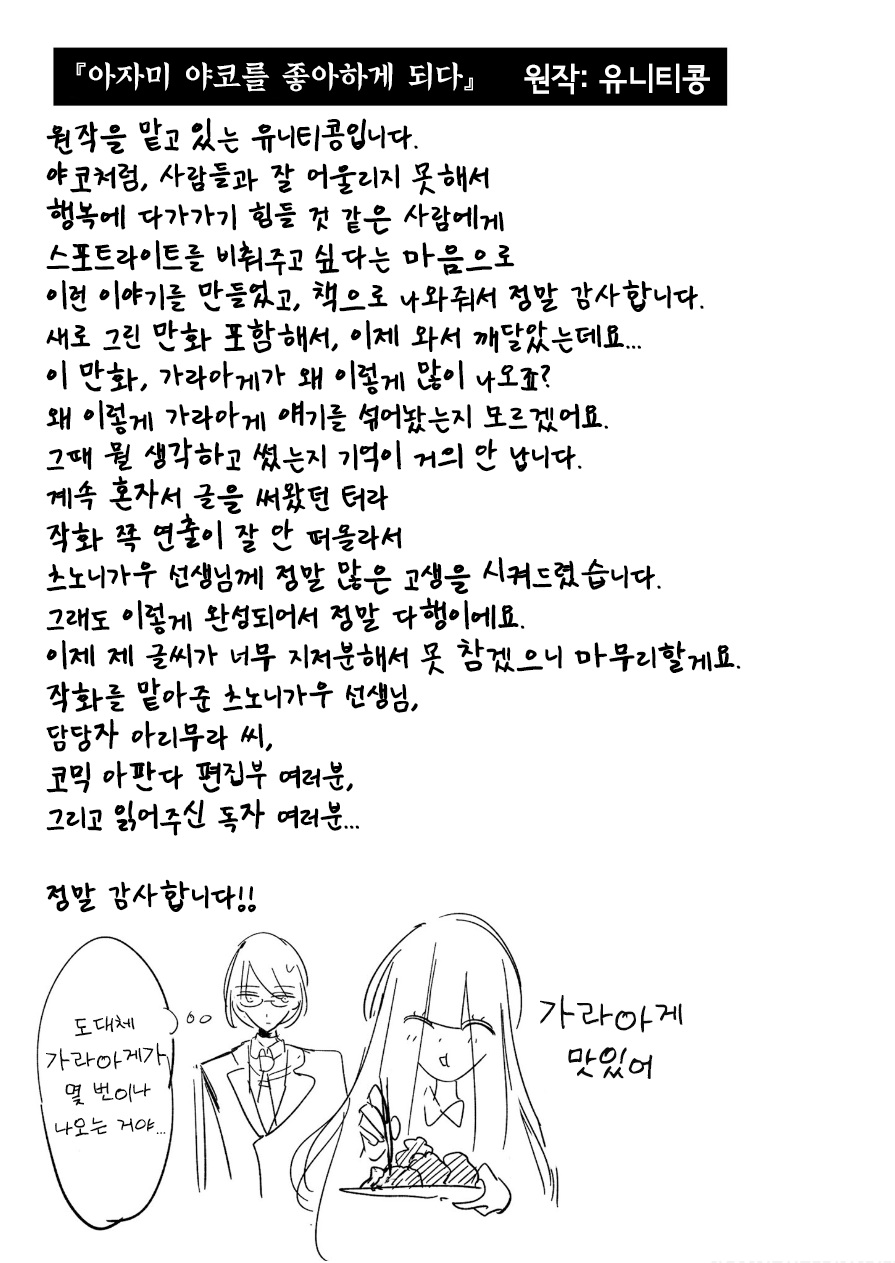 『아자미 야코를 좋아하게 되다』 원작: 유니티콩
원작을 맡고 있는 유니티콩입니다.
야코처럼, 사람들과 잘 어울리지 못해서
행복에 다가가기 힘들 것 같은 사람에게
스포트라이트를 비춰주고 싶다는 마음으로
이런 이야기를 만들었고, 책으로 나와줘서 정말 감사합니다.
새로 그린 만화 포함해서, 이제 와서 깨달았는데요...
이 만화, 가라아게가 왜 이렇게 많이 나오죠?
왜 이렇게 가라아게 얘기를 섞어놨는지 모르겠어요.
그때 뭘 생각하고 썼는지 기억이 거의 안 납니다.
계속 혼자서 글을 써왔던 터라
작화 쪽 연출이 잘 안 떠올라서
츠노니가우 선생님께 정말 많은 고생을 시켜드렸습니다.
그래도 이렇게 완성되어서 정말 다행이에요.
이제 제 글씨가 너무 지저분해서 못 참겠으니 마무리할게요.
작화를 맡아준 츠노니가우 선생님,
담당자 아리무라 씨,
코믹 아판다 편집부 여러분,
그리고 읽어주신 독자 여러분...
정말 감사합니다!!
도대체
가라아게가
몇 번이나
나오는 거야...
가라아게
맛있어